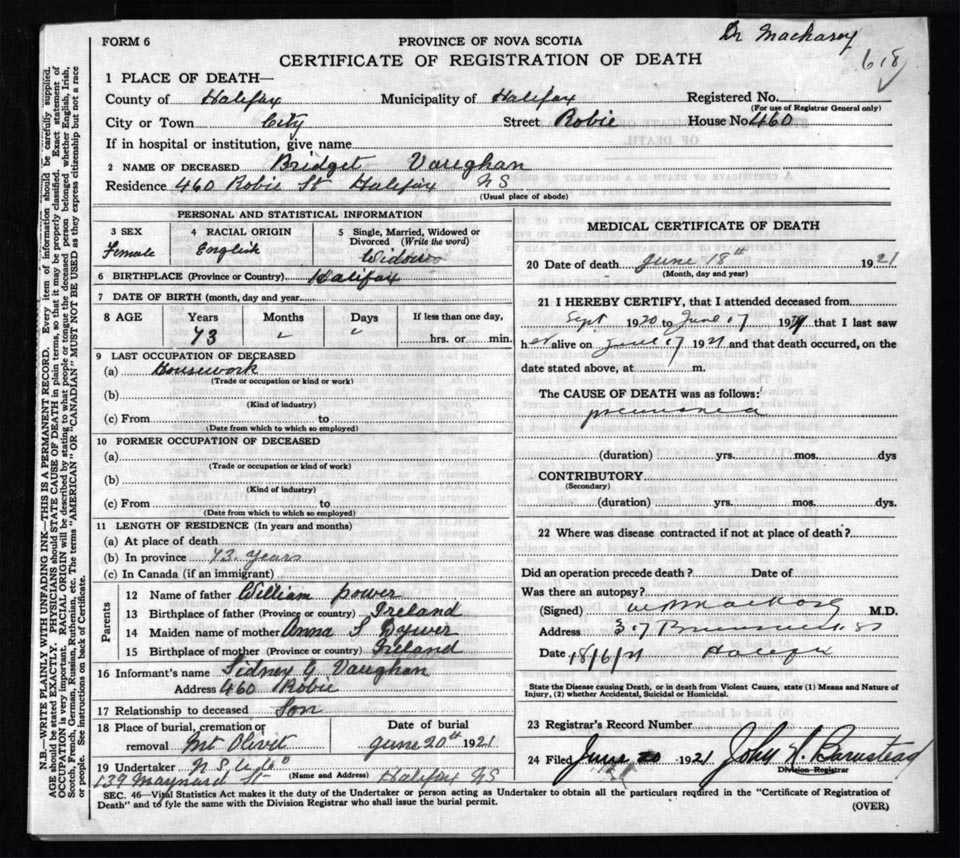 Dr Mackasey
FORM 6
PROVINCE OF NOVA SCOTIA
618
CERTIFICATE OF REGISTRATION OF DEATH
1 PLACE OF DEATH—
County of Halifax Municipality of Halifax Registered No.
(For use of Registrar General only)
City or Town City Street Robie House No. 460
If in hospital or institution, give name
2 NAME OF DECEASED Bridget Vaughan
Residence 460 Robie St Halifax NS
(Usual place of abode)
PERSONAL AND STATISTICAL INFORMATION
3 SEX 4 RACIAL ORIGIN 5 Single, Married, Widowed or Divorced (Write the word)
Female English Widow
6 BIRTHPLACE (Province or Country) Halifax
7 DATE OF BIRTH (month, day and year)
8 AGE Years Months Days If less than one day,
73 " " hrs. or min.
9 LAST OCCUPATION OF DECEASED
(a) Housework
(Trade or occupation or kind or work)
(b)
(Kind of industry)
(c) From to
(Date from which to which so employed)
10 FORMER OCCUPATION OF DECEASED
(a)
(Trade or occupation or kind of work)
(b)
(Kind of industry)
(c) From to
(Date from which to which so employed)
11 LENGTH OF RESIDENCE (In years and months)
(a) At place of death
(b) In province 73 years
(c) In Canada (if an immigrant)
Parents
12 Name of father William Power
13 Birthplace of father (Province or country) Ireland
14 Maiden name of mother Anna S Dywer
15 Birthplace of mother (Province or country) Ireland
16 Informant's name Sidney G Vaughan
Address 460 Robie
17 Relationship to deceased Son
18 Place of burial, cremation or removal Mt Olivet Date of burial June 20th 1921
19 Undertaker N S U Co
139 Maynard St (Name and Address) Halifax NS
MEDICAL CERTIFICATE OF DEATH
20 Date of death June 18th 1921
(Month, day and year)
21 I HEREBY CERTIFY, that I attended deceased from
Sept 1920 to June 17 1921 that I last saw
h er alive on June 17 1921 and that death occurred, on the
date stated above, at m.
The CAUSE OF DEATH was as follows:
pneumonia
(duration) yrs. mos. dys
CONTRIBUTORY
(Secondary)
(duration) yrs. mos. dys.
22 Where was disease contracted if not at place of death?
Did an operation precede death? Date of
Was there an autopsy?
(Signed) M.D.
Address Brunswick St
Date 18/6/21 Halifax
State the Disease causing Death, or in death from Violent Causes, state (1) Means and Nature of Injury, (2) whether Accidental, Suicidal or Homicidal.
23 Registrar's Record Number
24 Filed June 20 1921 John A. Barnstead
Division Registrar
SEC. 46—Vital Statistics Act makes it the duty of the Undertaker or person acting as Undertaker to obtain all the particulars required in the "Certificate of Registration of
Death" and to fyle the same with the Division Registrar who shall issue the burial permit. (OVER)
N.B.—WRITE PLAINLY WITH UNFADING INK—THIS IS A PERMANENT RECORD. Every item of information should be carefully supplied.
AGE should be stated EXACTLY. PHYSICIANS should STATE CAUSE OF DEATH in plain terms, so that it may be properly classified. Exact statement of
OCCUPATION is very important. RACIAL ORIGIN will be described by stating to what people or tongue the deceased person belonged whether English, Irish,
Scotch, French, German, Russian, Ruthenian, etc. The terms "AMERICAN" OR "CANADIAN" MUST NOT BE USED as they express citizenship but not a race
or people. See instructions on back of Certificate.